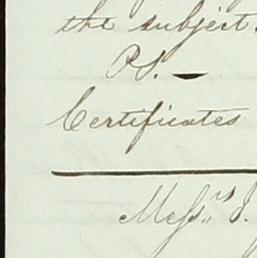 the subject.
P.S. —
Certificates
Mess.rs J.